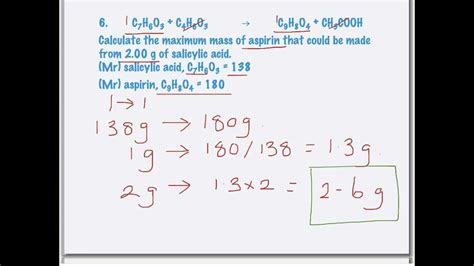 6. 1 C₇H₆O₃ + C₄H₆O₃ → 1 C₉H₈O₄ + CH₃COOH
Calculate the maximum mass of aspirin that could be made
from 2.00 g of salicylic acid.
(Mr) salicylic acid, C₇H₆O₃ = 138
(Mr) aspirin, C₉H₈O₄ = 180
1 → 1
138g → 180g.
1g → 180/138 = 1.3g
2g → 1.3×2 = 2-6g